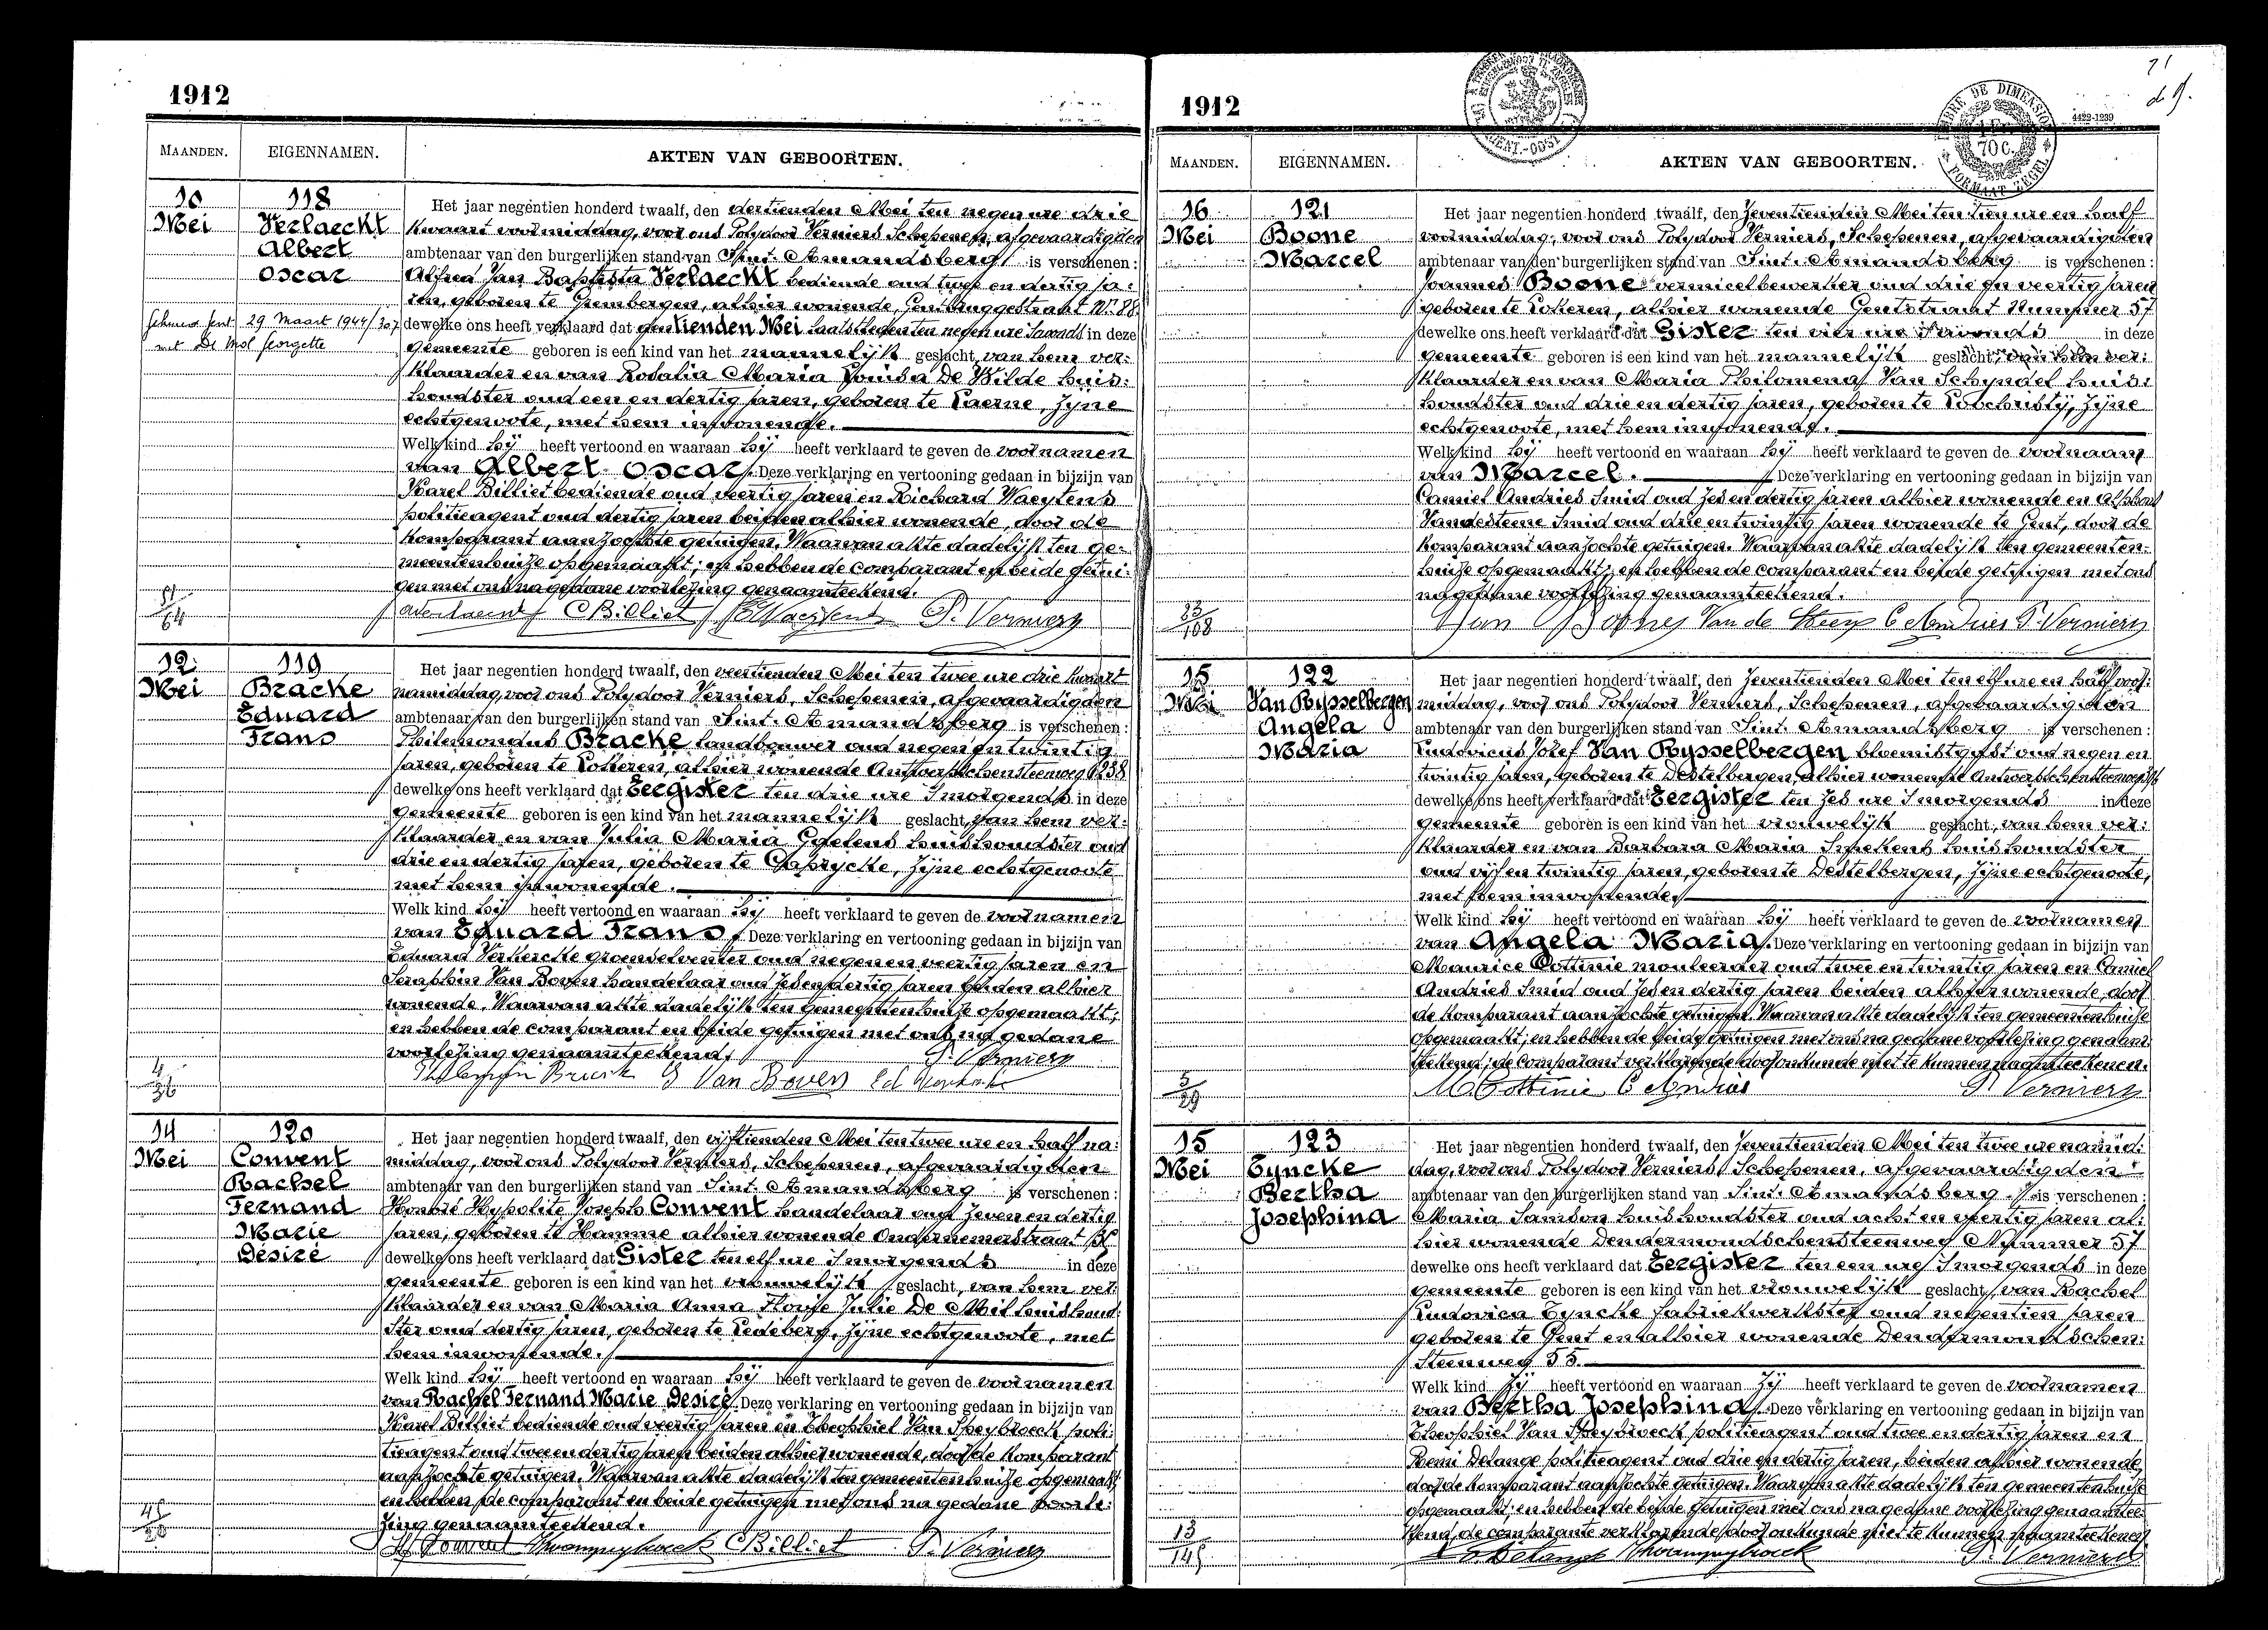 1912
MAANDEN. EIGENNAMEN. AKTEN VAN GEBOORTEN.
10 118
Mei Verlaeckt
Albert
Oscar
29 Maart 1944
met De Mol Georgette
Het jaar negentien honderd twaalf, den dertienden Mei ten negen ure drie
kwaart voormiddag, voor ons Polydoor Verniers Schepenen, afgevaardigden
ambtenaar van den burgerlijken stand van Sint-Amandsberg is verschenen:
Alfred Jan Baptista Verlaeckt bediende oud twee en dertig ja-
ren, geboren te Grembergen, alhier wonende, Gentbruggestraat Nr 88
dewelke ons heeft verklaard dat den tienden Mei laatstleden ten negen ure 's avonds in deze
gemeente geboren is een kind van het mannelijk geslacht, van hem ver-
klaarder en van Rosalia Maria Louisa De Wilde huis-
houdster oud een en dertig jaren, geboren te Laerne, zijne
echtgenoote, met hem inwonende.
Welk kind hij heeft vertoond en waaraan hij heeft verklaard te geven de voornamen
van Albert Oscar. Deze verklaring en vertooning gedaan in bijzijn van
Karel Billiet bediende oud veertig jaren en Richard Waeytens
politieagent oud dertig jaren beiden alhier wonende, door de
komparant aanzochte getuigen. Waarvan akte dadelijk ten ge-
meentenhuize opgemaakt; en hebben de comparant en beide getui-
gen met ons na gedane voorlezing genaamteekend.
C Billiet P. Verniers
12 119
Mei Bracke
Eduard
Frans
Het jaar negentien honderd twaalf, den veertienden Mei ten twee ure drie kwart
namiddag, voor ons Polydoor Verniers, Schepenen, afgevaardigden
ambtenaar van den burgerlijken stand van Sint-Amandsberg is verschenen:
Philemondus Bracke landbouwer oud negen en twintig
jaren, geboren te Lokeren, alhier wonende Antwerpschensteenweg 238
dewelke ons heeft verklaard dat Eergister ten drie ure 's morgends in deze
gemeente geboren is een kind van het mannelijk geslacht, van hem ver-
klaarder en van Julia Maria huishoudster oud
drie en dertig jaren, geboren te Caprycke, zijne echtgenoote
met hem inwonende.
Welk kind hij heeft vertoond en waaraan hij heeft verklaard te geven de voornamen
van Eduard Frans. Deze verklaring en vertooning gedaan in bijzijn van
Eduard Verkercke groenselventer oud negen en veertig jaren en
Seraphin Van Boven handelaar oud zes en dertig jaren beiden alhier
wonende. Waarvan akte dadelijk ten gemeentenhuize opgemaakt;
en hebben de comparant en beide getuigen met ons na gedane
voorlezing genaamteekend.
P. Verniers
S Van Boven
14 120
Mei Convent
Rachel
Fernand
Marie
Désiré
Het jaar negentien honderd twaalf, den vijftienden Mei ten twee ure en half na-
middag, voor ons Polydoor Verniers, Schepenen, afgevaardigden
ambtenaar van den burgerlijken stand van Sint-Amandsberg is verschenen:
Honoré Hypolite Joseph Convent handelaar oud zeven en dertig
jaren, geboren te Hamme alhier wonende Ondernemerstraat
dewelke ons heeft verklaard dat Gister ten elf ure 's morgends in deze
gemeente geboren is een kind van het vrouwelijk geslacht, van hem ver-
klaarder en van Maria Anna Julie De Mil huishoud-
ster oud dertig jaren, geboren te Ledeberg, zijne echtgenoote, met
hem inwonende.
Welk kind hij heeft vertoond en waaraan hij heeft verklaard te geven de voornamen
van Rachel Fernand Marie Désiré. Deze verklaring en vertooning gedaan in bijzijn van
Karel Billiet bediende oud veertig jaren en Theophiel Van Speybroeck poli-
tieagent oud twee en dertig jaren beiden alhier wonende, door de komparant
aanzochte getuigen. Waarvan akte dadelijk ten gemeentenhuize opgemaakt,
en hebben de comparant en beide getuigen met ons na gedane voorle-
zing genaamteekend.
H Convent C Billiet P. Verniers
1912
4422-1239
MAANDEN. EIGENNAMEN. AKTEN VAN GEBOORTEN.
16 121
Mei Boone
Marcel
Het jaar negentien honderd twaalf, den zeventienden Mei ten tien ure en half
voormiddag, voor ons Polydoor Verniers, Schepenen, afgevaardigden
ambtenaar van den burgerlijken stand van Sint-Amandsberg is verschenen:
Joannes Boone vermicelbewerker oud drie en veertig jaren
geboren te Lokeren, alhier wonende Gentstraat Nummer 57
dewelke ons heeft verklaard dat Gister ten vier ure 's avonds in deze
gemeente geboren is een kind van het mannelijk geslacht, van hem ver-
klaarder en van Maria Philomena Van Schyndel huis-
houdster oud drie en dertig jaren, geboren te Lochristy, zijne
echtgenoote, met hem inwonende.
Welk kind hij heeft vertoond en waaraan hij heeft verklaard te geven de voornaam
van Marcel. Deze verklaring en vertooning gedaan in bijzijn van
Camiel Andries Smid oud zes en dertig jaren alhier wonende en Alphons
Vandesteene Smid oud drie en twintig jaren wonende te Gent, door de
komparant aanzochte getuigen. Waarvan akte dadelijk ten gemeenten-
huize opgemaakt; en hebben de comparant en beide getuigen met ons
na gedane voorlezing genaamteekend.
C Andries P. Verniers
15 122
Mei Van Rysselbergen
Angela
Maria
Het jaar negentien honderd twaalf, den zeventienden Mei ten elf ure en half voor-
middag, voor ons Polydoor Verniers, Schepenen, afgevaardigden
ambtenaar van den burgerlijken stand van Sint-Amandsberg is verschenen:
Ludovicus Jozef Van Rysselbergen bloemistgast oud negen en
twintig jaren, geboren te Destelbergen, alhier wonende Antwerpschensteenweg
dewelke ons heeft verklaard dat Eergister ten zes ure 's morgends in deze
gemeente geboren is een kind van het vrouwelijk geslacht, van hem ver-
klaarder en van Barbara Maria huishoudster
oud vijf en twintig jaren, geboren te Destelbergen, zijne echtgenoote,
met hem inwonende.
Welk kind hij heeft vertoond en waaraan hij heeft verklaard te geven de voornamen
van Angela Maria. Deze verklaring en vertooning gedaan in bijzijn van
Maurice Cottinie mouleerder oud twee en twintig jaren en Camiel
Andries Smid oud zes en dertig jaren beiden alhier wonende, door
de komparant aanzochte getuigen. Waarvan akte dadelijk ten gemeentenhuize
opgemaakt; en hebben de beide getuigen met ons na gedane voorlezing genaam-
teekend; de comparant verklarende door onkunde niet te kunnen naamteekenen.
M. Cottinie C Andries P. Verniers
15 123
Mei Eyncke
Bertha
Josephina
Het jaar negentien honderd twaalf, den zeventienden Mei ten twee ure namid-
dag, voor ons Polydoor Verniers, Schepenen, afgevaardigden
ambtenaar van den burgerlijken stand van Sint-Amandsberg is verschenen:
Maria Samson huishoudster oud acht en veertig jaren al-
hier wonende Dendermondschensteenweg Nummer 57
dewelke ons heeft verklaard dat Eergister ten een ure 's morgends in deze
gemeente geboren is een kind van het vrouwelijk geslacht, van Rachel
Ludovica Eyncke fabriekwerkster oud negentien jaren
geboren te Gent en alhier wonende Dendermondschen-
steenweg 55.
Welk kind zij heeft vertoond en waaraan zij heeft verklaard te geven de voornamen
van Bertha Josephina. Deze verklaring en vertooning gedaan in bijzijn van
Theophiel Van Speybroeck politieagent oud twee en dertig jaren en
Remi Delange politieagent oud drie en dertig jaren, beiden alhier wonende,
door de komparant aanzochte getuigen. Waarvan akte dadelijk ten gemeentenhuize
opgemaakt; en hebben de beide getuigen met ons na gedane voorlezing genaamtee-
kend, de comparante verklarende door onkunde niet te kunnen naamteekenen
R Delange P. Verniers